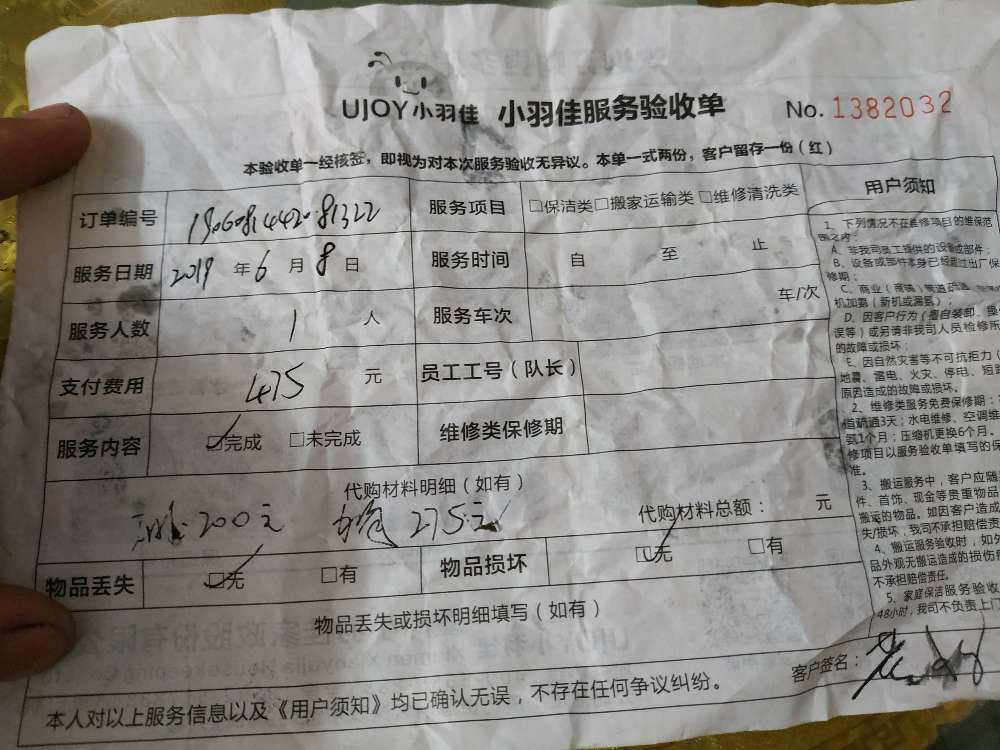 UJOY小羽佳 小羽佳服务验收单 No. 1382032
本验收单一经核签，即视为对本次服务验收无异议。本单一式两份，客户留存一份（红）
订单编号 服务项目 □保洁类□搬家运输类□维修清洗类
服务日期 2019 年 6 月 8 日 服务时间 自 至 止
服务人数 1 人 服务车次 车/次
支付费用 475 元 员工工号（队长）
服务内容 ☑完成 □未完成 维修类保修期
代购材料明细（如有）
200元 275元 代购材料总额： 元
物品丢失 ☑无 □有 物品损坏 ☑无 □有
物品丢失或损坏明细填写（如有）
本人对以上服务信息以及《用户须知》均已确认无误，不存在任何争议纠纷。
客户签名：
用户须知
1、下列情况不在维修项目的维保范
围之内：
A、非我司员工提供的设备或部件；
B、设备或部件本身已经超过出厂保
修期；
C、商业（商铺）管道疏通、
机加氟（新机或漏氨）；
D、因客户行为（擅自装卸、操
误等）或另请非我司人员检修所
的故障或损坏：
E、因自然灾害等不可抗拒力（
地震、雷电、火灾、停电、短路
原因造成的故障或损坏。
2、维修类服务免费保修期：
道疏通3天；水电维修、空调维
氨1个月；压缩机更换6个月。
修项目以服务验收单填写的保
准。
3、搬运服务中，客户应随
件、首饰、现金等贵重物品
搬运的物品。如因客户造成
失/损坏，我司不承担赔偿责
4、搬运服务验收时，如外
品外观无搬运造成的损伤
不承担赔偿责任。
5、家庭保洁服务验收
48小时，我司不负责上门